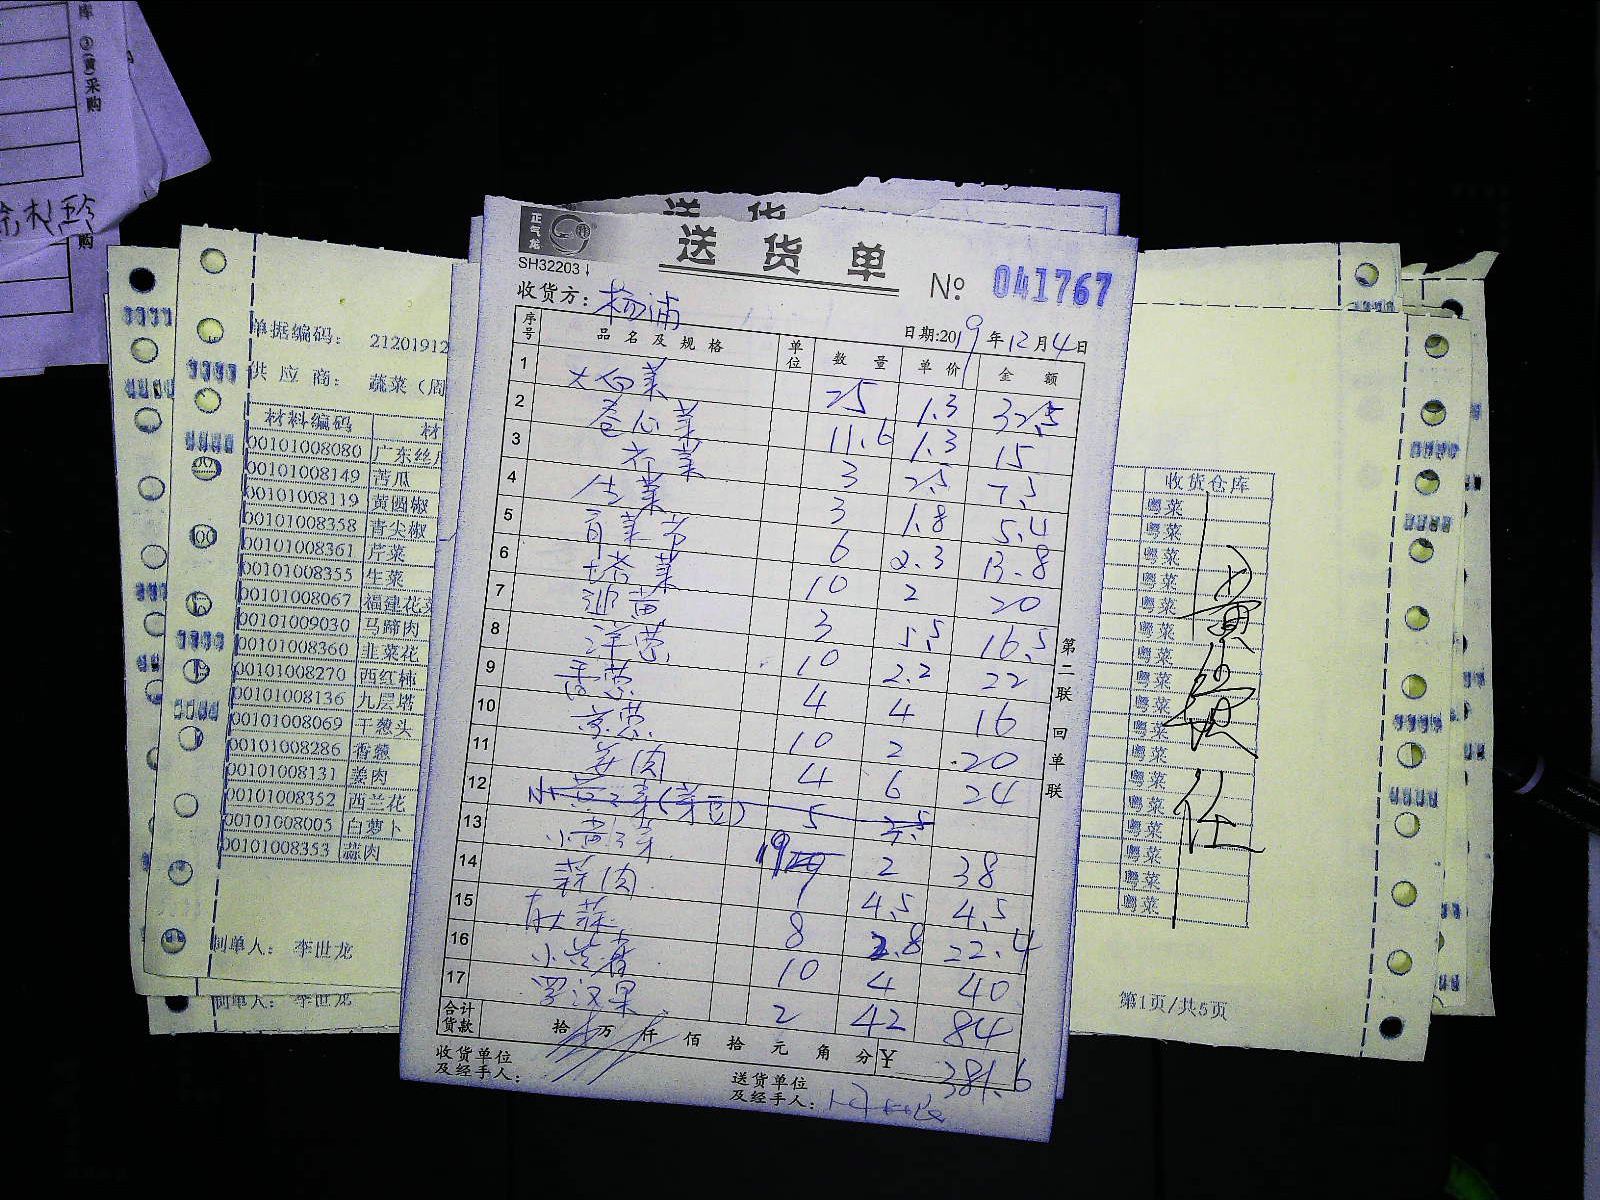 库
③(黄)采购
购
送 货
正气龙
送 货 单
SH32203
№ 041767
收货方: 杨浦
日期:2019年12月4日
序号 品名及规格 单位 数量 单价 金额
1 大白菜 25 1.3 32.5
2 卷心菜 11.6 1.3 15
3 芹菜 3 2.5 7.5
4 生菜 3 1.8 5.4
5 6 2.3 13.8
6 塔菜 10 2 20
7 3 5.5 16.5
8 洋葱 10 2.2 22
9 香葱 4 4 16
10 京葱 10 2 20
11 姜肉 4 6 24
12 5
13 19 2 38
14 蒜肉 1 4.5 4.5
15 8 2.8 22.4
16 10 4 40
17 罗汉果 2 42 84
合计货款 拾 万 仟 佰 拾 元 角 分 ¥ 381.6
收货单位及经手人:
送货单位及经手人:
第二联 回单联
单据编码: 21201912
供应商: 蔬菜(周
材料编码 材
00101008080 广东丝瓜
00101008149 苦瓜
00101008119 黄圆椒
00101008358 青尖椒
00101008361 芹菜
00101008355 生菜
00101008067 福建花菜
00101009030 马蹄肉
00101008360 韭菜花
00101008270 西红柿
00101008136 九层塔
00101008069 干葱头
00101008286 香葱
00101008131 姜肉
00101008352 西兰花
00101008005 白萝卜
00101008353 蒜肉
制单人: 李世龙
制单人: 李世龙
收货仓库
粤菜
粤菜
粤菜
粤菜
粤菜
粤菜
粤菜
粤菜
粤菜
粤菜
粤菜
粤菜
粤菜
粤菜
粤菜
粤菜
粤菜
第1页/共5页